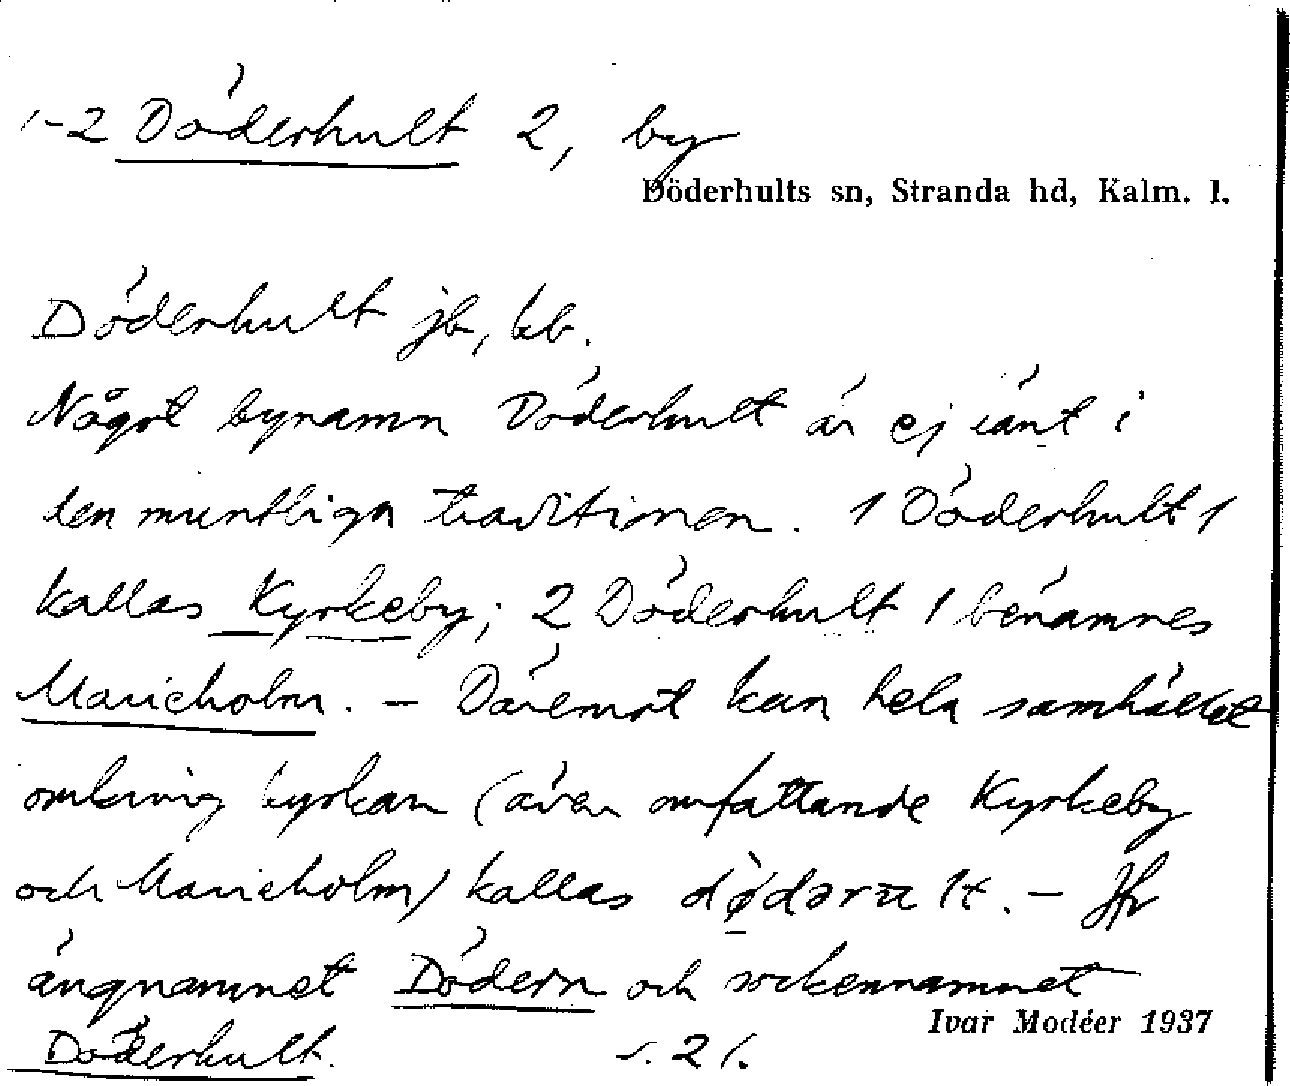 1-2 Döderhult 2, by
Döderhults sn, Stranda hd, Kalm. l.
Döderhult jb, kb.
Något bynamn Döderhult är ej känt i
den muntliga traditionen. 1 Döderhult 1
kallas Kyrkeby; 2 Döderhult 1 benämnes
Marieholm. – Däremot kan hela samhället
omkring kyrkan (även omfattande Kyrkeby
och Marieholm) kallas – Jfr
ängnamnet Dödern och sockennamnet
Ivar Modéer 1937
Döderhult. s. 21.